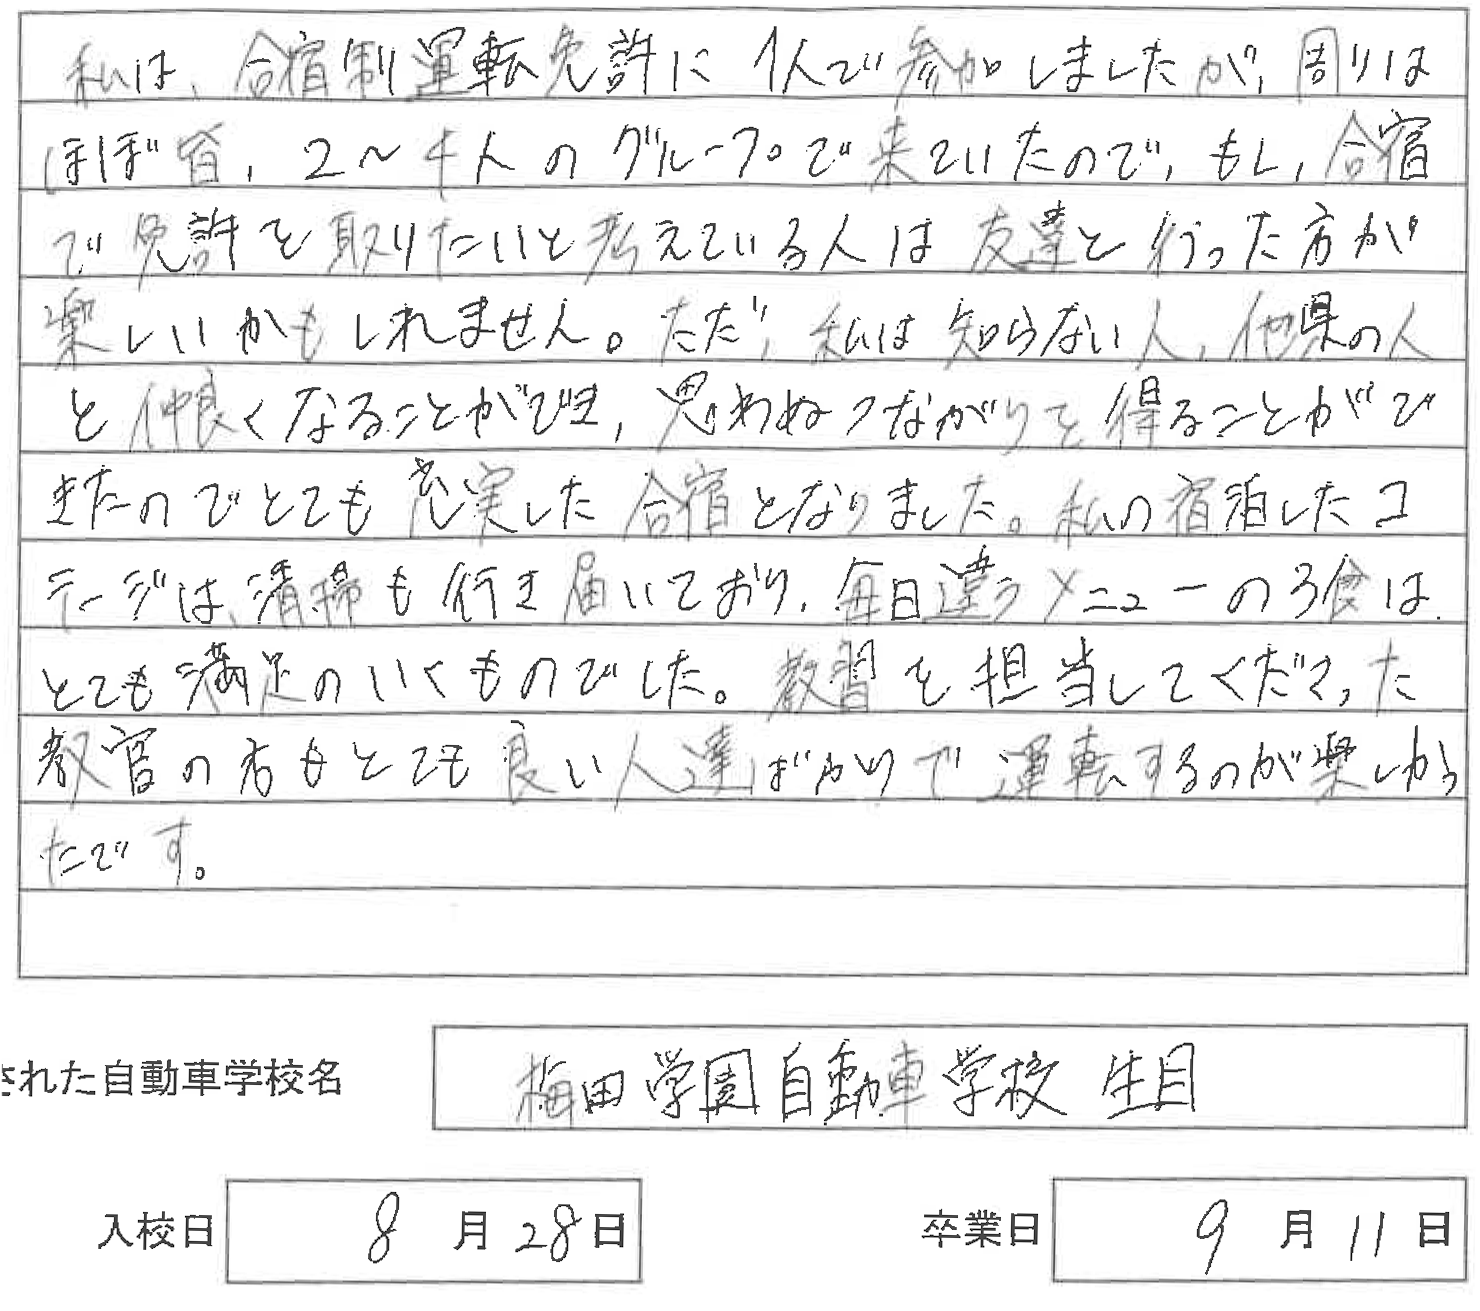 私は、合宿制運転免許に1人で参加しましたが、周りは
ほぼ皆、2〜4人のグループで来ていたので、もし、合宿
で免許を取りたいと考えている人は友達と行った方が
楽しいかもしれません。ただ、私は知らない人、他県の人
と仲良くなることができ、思わぬつながりを得ることがで
きたのでとても充実した合宿となりました。私の宿泊したコ
テージは、清掃も行き届いており、毎日違うメニューの3食は
とても満足のいくものでした。教習を担当してくださった
教官の方もとても良い人達ばかりで運転するのが楽しかっ
たです。
された自動車学校名 梅田学園自動車学校 生目
入校日 8月28日 卒業日 9月11日